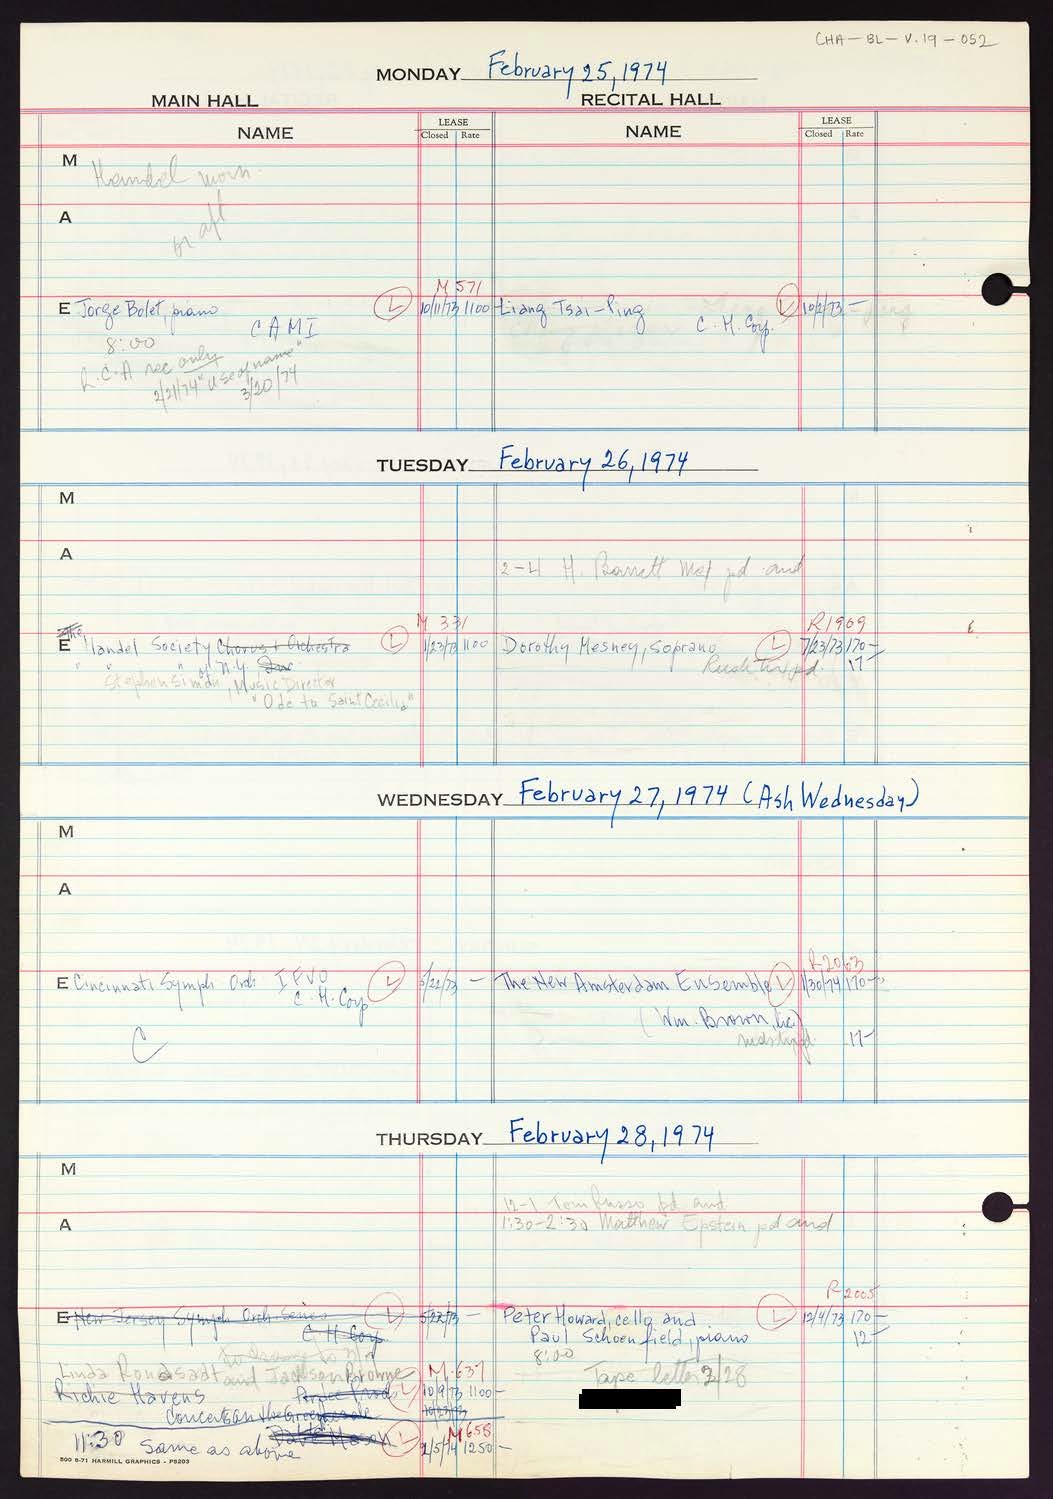 CHA-BL-V.19-052
MONDAY February 25, 1974
MAIN HALL
RECITAL HALL
NAME
LEASE
Closed Rate
NAME
LEASE
Closed Rate
M
Handel morn.
A
or aft
M 571
E Jorge Bolet, piano L 10/11/73 1100
CAMI
8:00
R.C.A rec only
2/21/74 "Use of name"
3/20/74
Liang Tsai-Ping L 10/2/73 -
C. H. Corp.
TUESDAY February 26, 1974
M
A
2-4 H. Barrett pd and
M 331
The
E Handel Society Chorus & Orchestra L 1/23/73 1100
" " " of N.Y.
Stephen Simon, Music Director
"Ode to Saint Cecilia"
R1969
Dorothy Mesney, soprano L 7/23/73 170-
pd. 17-
WEDNESDAY February 27, 1974 (Ash Wednesday)
M
A
E Cincinnati Symph Orch IFVO L 5/22/73 -
C. H. Corp
C
R2063
The New Amsterdam Ensemble L 1/30/74 170-
(Wm. Brown, tic)
17-
THURSDAY February 28, 1974
M
12-1 Tom Russo pd and
A
1:30-2:30 Matthew Epstein pd and
E New Jersey Symph Orch Series L 5/22/73 -
C H Corp
R 2005
Peter Howard, cello and L 12/4/73 170-
Paul Schoenfield, piano 12-
8:00
Tape letter 3/28
Linda Ronstadt and Jackson Browne M. 637
Richie Havens L 10/9/73 1100-
Concerts on the Green
M 658
11:30 Same as above Dave Mason L 2/5/74 1250-
500 8-71 HARMILL GRAPHICS - P5203